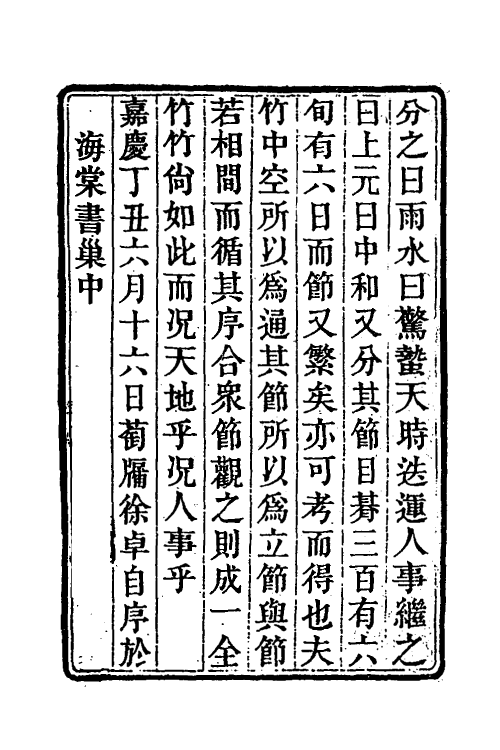 分之曰雨水曰驚蟄天時迭運人事繼之
曰上元曰中和又分其節目朞三百有六
旬有六日而節又繁矣亦可考而得也夫
竹中空所以為通其節所以為立節與節
若相間而循其序合衆節觀之則成一全
竹竹尙如此而况天地乎况人事乎
嘉慶丁丑六月十六日萄牖徐卓自序於
海棠書巢中